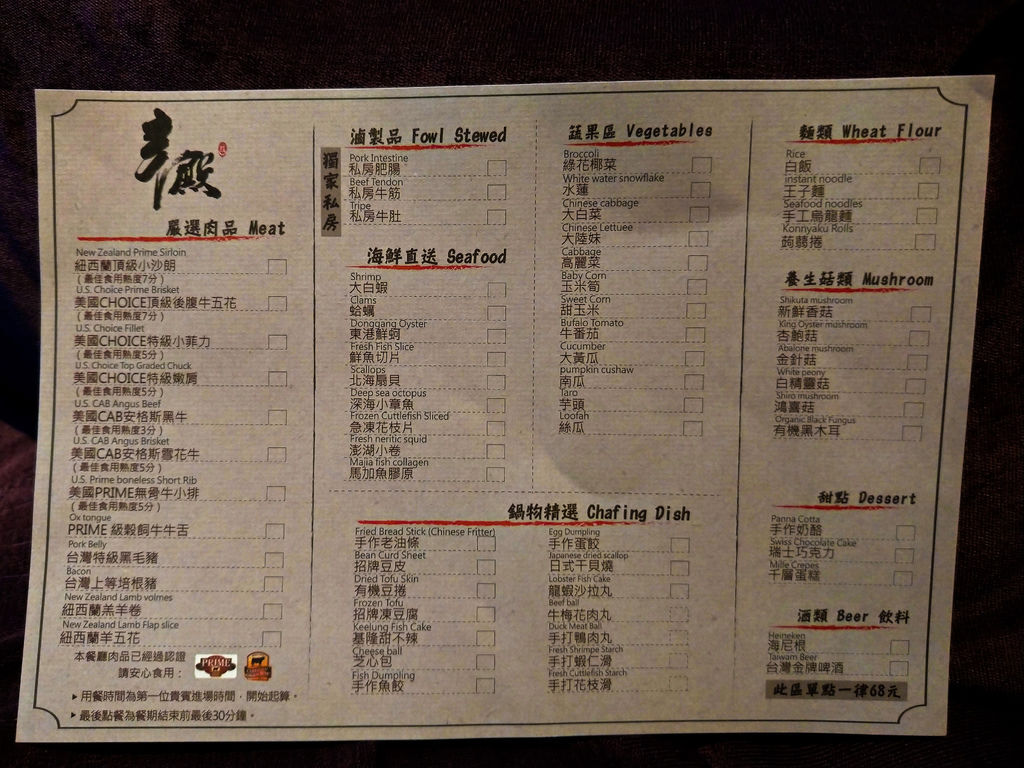 嚴選肉品 Meat
New Zealand Prime Sirloin
紐西蘭頂級小沙朗
(最佳食用熟度7分)
U.S. Choice Prime Brisket
美國CHOICE頂級後腹牛五花
(最佳食用熟度7分)
U.S. Choice Fillet
美國CHOICE特級小菲力
(最佳食用熟度5分)
U.S. Choice Top Graded Chuck
美國CHOICE特級嫩肩
(最佳食用熟度5分)
U.S. CAB Angus Beef
美國CAB安格斯黑牛
(最佳食用熟度3分)
U.S. CAB Angus Brisket
美國CAB安格斯雪花牛
(最佳食用熟度5分)
U.S. Prime boneless Short Rib
美國PRIME無骨牛小排
(最佳食用熟度5分)
Ox tongue
PRIME 級穀飼牛牛舌
Pork Belly
台灣特級黑毛豬
Bacon
台灣上等培根豬
New Zealand Lamb volmes
紐西蘭羔羊卷
New Zealand Lamb Flap slice
紐西蘭羊五花
本餐廳肉品已經過認證
請安心食用：
PRIME
▶用餐時間為第一位貴賓進場時間，開始起算。
▶最後點餐為餐期結束前最後30分鐘。
滷製品 Fowl Stewed
獨家私房
Pork Intestine
私房肥腸
Beef Tendon
私房牛筋
Tripe
私房牛肚
海鮮直送 Seafood
Shrimp
大白蝦
Clams
蛤蠣
Donggang Oyster
東港鮮蚵
Fresh Fish Slice
鮮魚切片
Scallops
北海扇貝
Deep sea octopus
深海小章魚
Frozen Cuttlefish Sliced
急凍花枝片
Fresh neritic squid
澎湖小卷
Majia fish collagen
馬加魚膠原
蔬果區 Vegetables
Broccoli
綠花椰菜
White water snowflake
水蓮
Chinese cabbage
大白菜
Chinese Lettuee
大陸妹
Cabbage
高麗菜
Baby Corn
玉米筍
Sweet Corn
甜玉米
Bufalo Tomato
牛番茄
Cucumber
大黃瓜
pumpkin cushaw
南瓜
Taro
芋頭
Loofah
絲瓜
鍋物精選 Chafing Dish
Fried Bread Stick (Chinese Fritter)
手作老油條
Bean Curd Sheet
招牌豆皮
Dried Tofu Skin
有機豆捲
Frozen Tofu
招牌凍豆腐
Keelung Fish Cake
基隆甜不辣
Cheese ball
芝心包
Fish Dumpling
手作魚餃
Egg Dumpling
手作蛋餃
Japanese dried scallop
日式干貝燒
Lobster Fish Cake
龍蝦沙拉丸
Beef ball
牛梅花肉丸
Duck Meat Ball
手打鴨肉丸
Fresh Shrimpe Starch
手打蝦仁滑
Fresh Cuttlefish Starch
手打花枝滑
麵類 Wheat Flour
Rice
白飯
instant noodle
王子麵
Seafood noodles
手工烏龍麵
Konnyaku Rolls
蒟蒻捲
養生菇類 Mushroom
Shikuta mushroom
新鮮香菇
King Oyster mushroom
杏鮑菇
Abalone mushroom
金針菇
White peony
白精靈菇
Shiro mushroom
鴻喜菇
Organic Black Fungus
有機黑木耳
甜點 Dessert
Panna Cotta
手作奶酪
Swiss Chocolate Cake
瑞士巧克力
Mille Crepes
千層蛋糕
酒類 Beer 飲料
Heineken
海尼根
Taiwam Beer
台灣金牌啤酒
此區單點一律68元